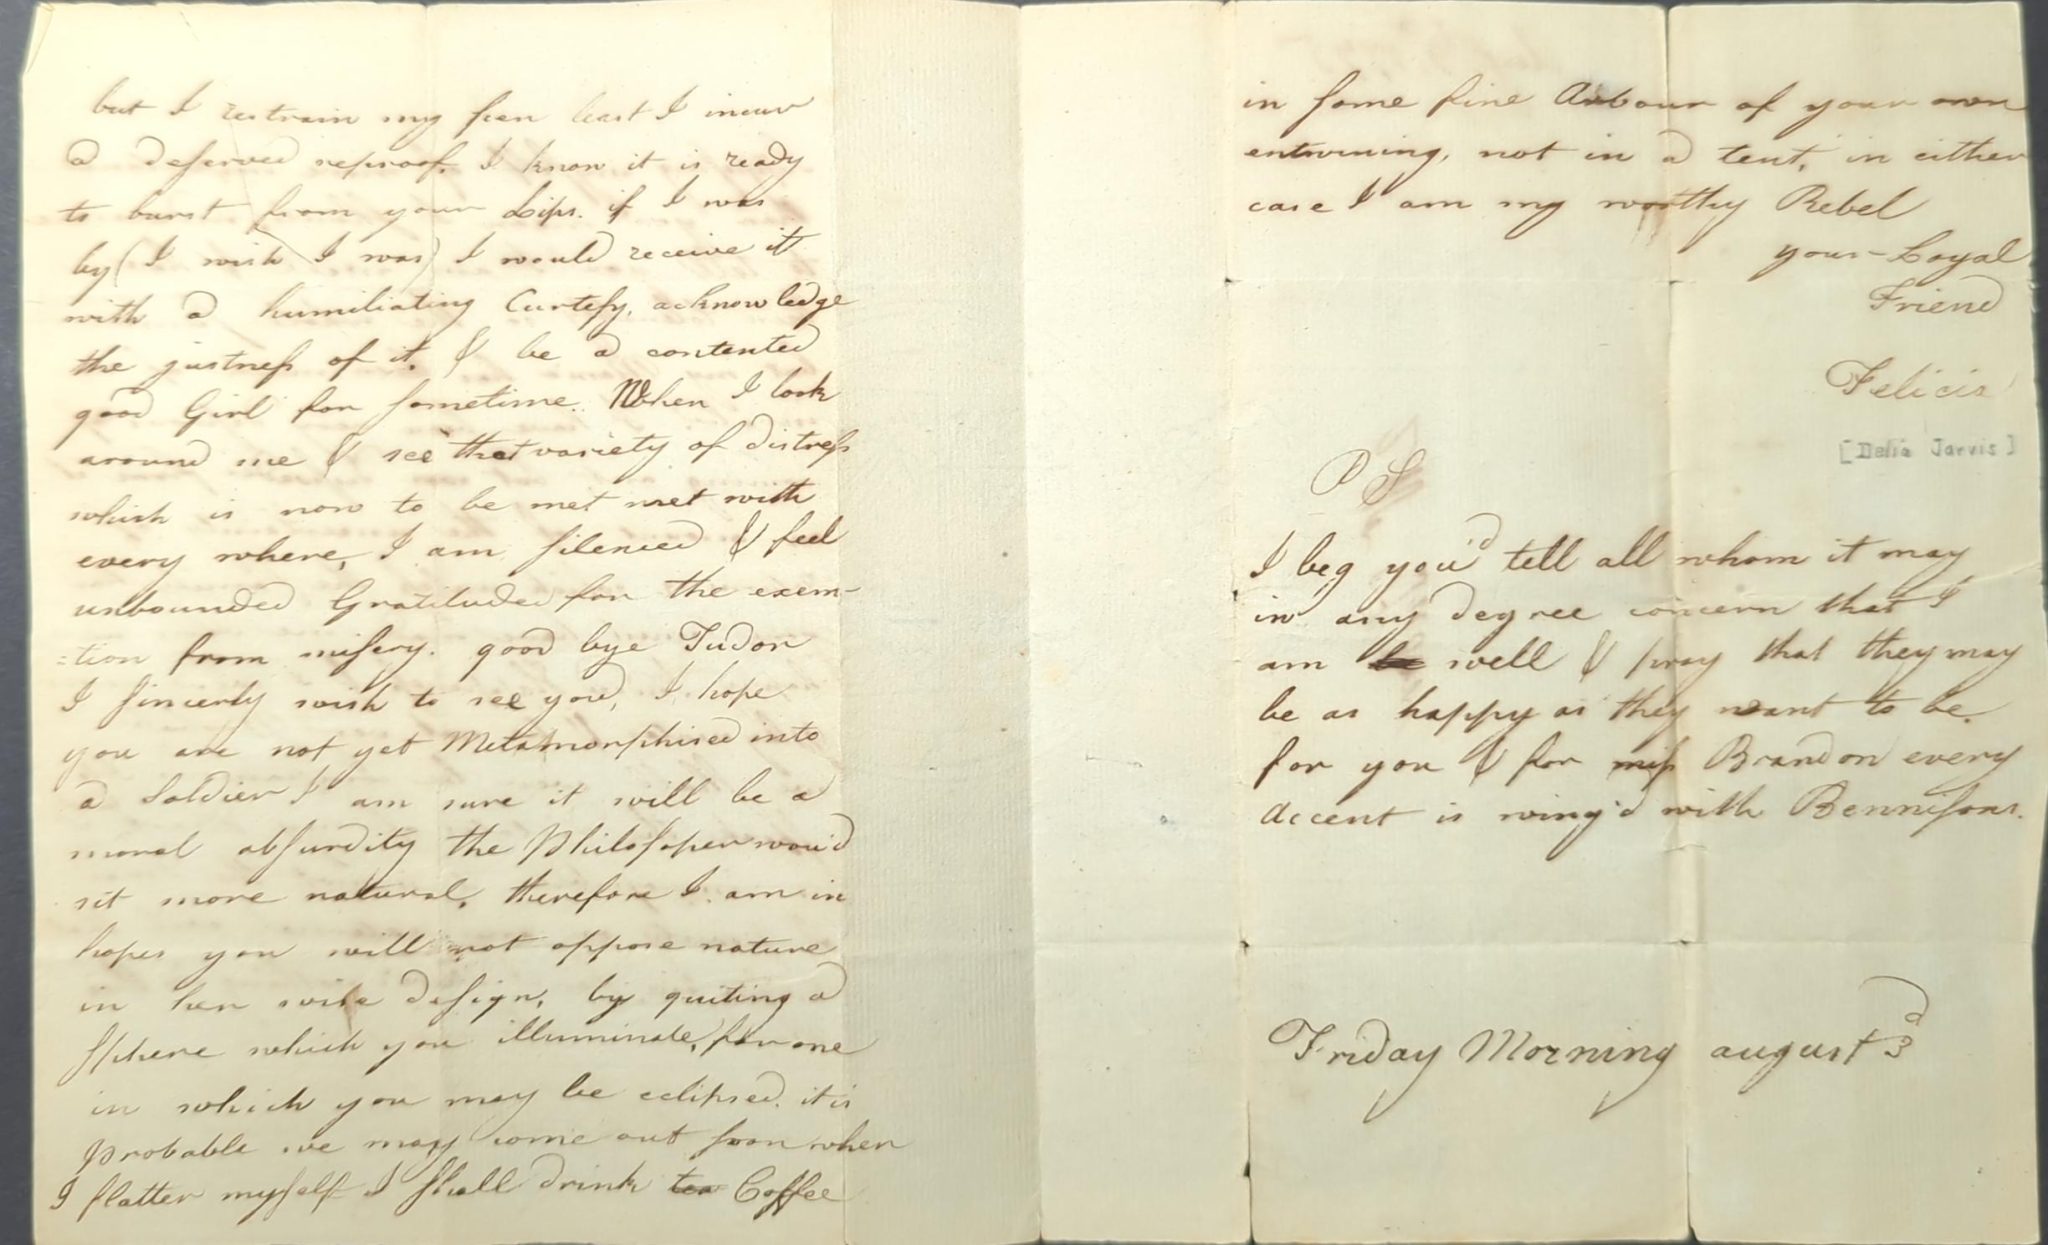 but I restrain my pen least I incur
a deserved reproof. I know it is ready
to burst from your Lips. if I was
by ( I wish I was) I would receive it
with a humiliating Curtesy, acknowledge
the justness of it. & be a contented
good Girl for sometime. When I look
around me & see that variety of distress
which is now to be met met with
every where, I am silenced & feel
unbounded Gratitude for the exem-
=tion from misery. good bye Tudor
I sincerly wish to see you, I hope
you are not yet Metamorphised into
a Soldier I am sure it will be a
moral absurdity the Philosoper wou'd
sit more natural, therefore I am in
hopes you will not oppose nature
in her wise design, by quiting a
Sphere which you illuminate, for one
in which you may be eclipsed. it is
probable we may come out soon when
I flatter myself I shall drink tea Coffee
in some fine Arbour of your own
entwining, not in a tent, in either
case I am my worthy Rebel
your - Loyal
Friend
Felicia
[Delia Jarvis]
P S
I beg you'd tell all whom it may
in any degree concern that I
am well & pray that they may
be as happy as they want to be.
for you & for miss Brandon every
accent is wing'd with Bennisons.
Friday Morning august 3d